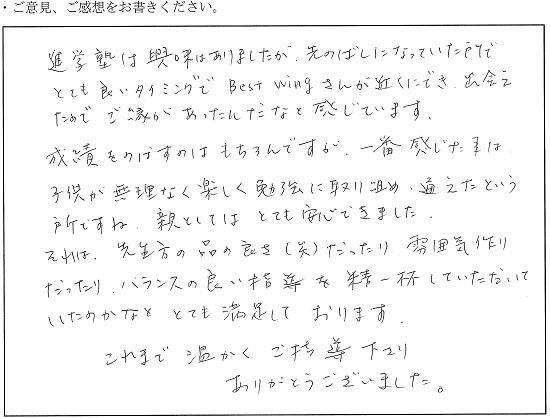 ・ご意見、ご感想をお書きください。
進学塾は興味はありましたが、先のばしになっていた所で
とても良いタイミングで Best wingさんが近くにでき、出会え
たので ご縁があったんだなと感じています。
成績をのばすのは もちろんですが、一番 感じた事は、
子供が無理なく楽しく勉強に取り組め、通えたという
所ですね。親としては とても安心できました。
それは、先生方の品の良さ(笑)だったり 雰囲気作り
だったり、バランスの良い指導を精一杯していただいて
いたのかなと とても満足して おります。
これまで 温かく ご指導 下さり
ありがとうございました。